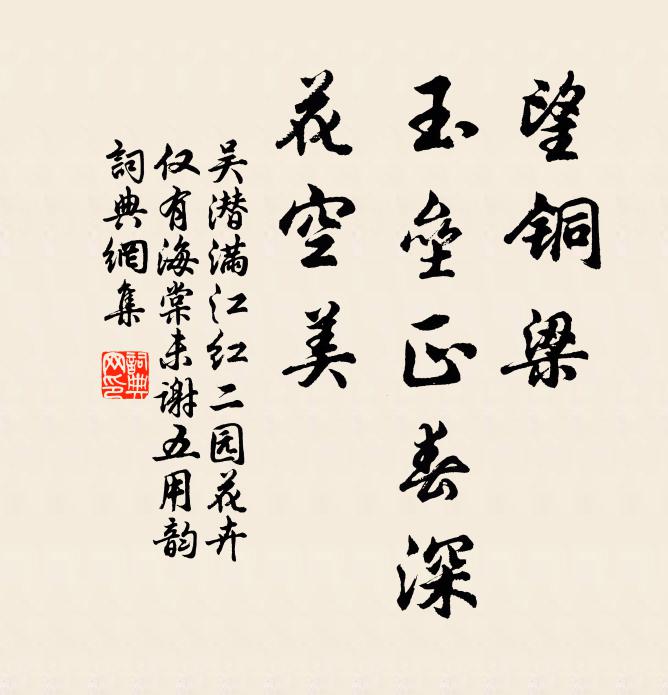 望铜梁
玉垒正春深
花空美
吴潜满江红二园花卉
仅有海棠未谢五用韵
詞典網集
詞典网印